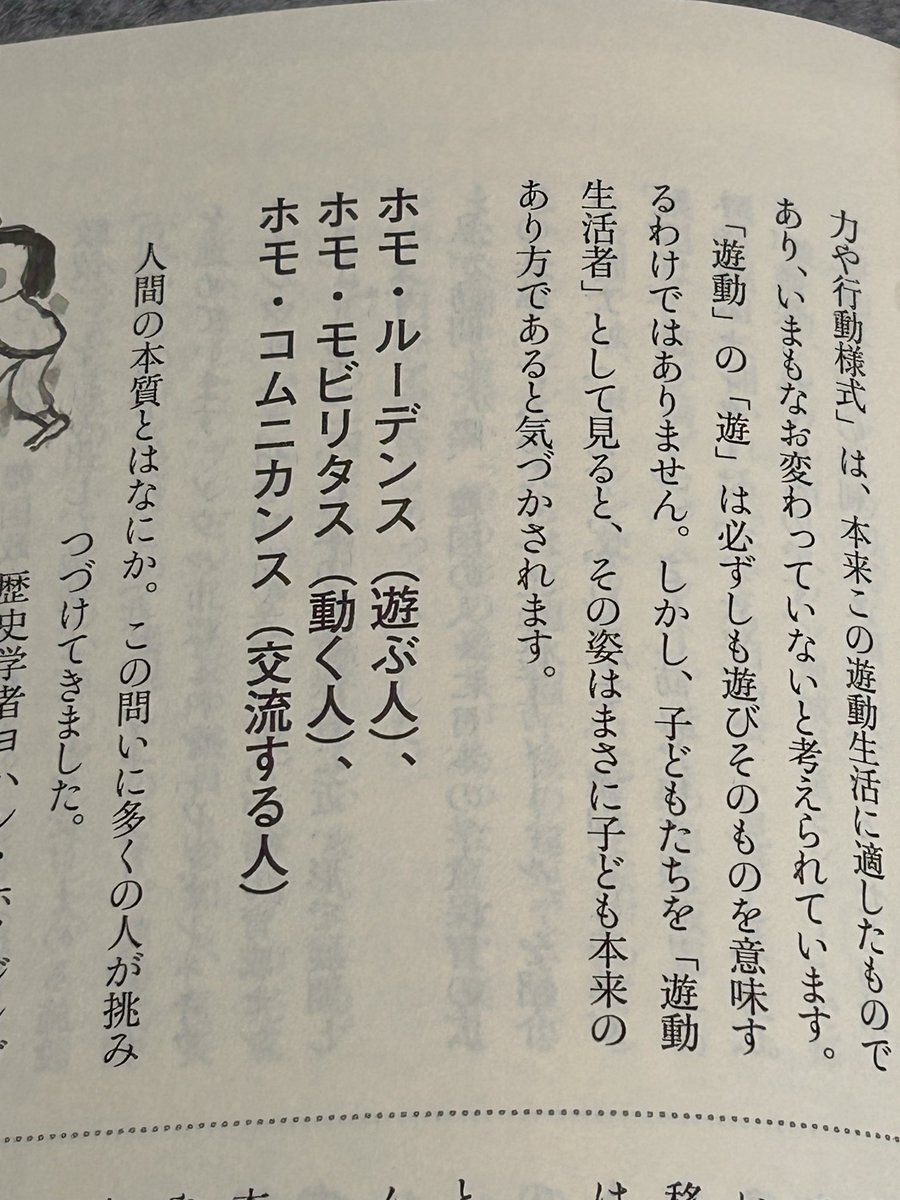 力や行動様式」は、本来この遊動生活に適したもので
あり、いまもなお変わっていないと考えられています。
「遊動」の「遊」は必ずしも遊びそのものを意味す
るわけではありません。しかし、子どもたちを「遊動
生活者」として見ると、その姿はまさに子ども本来の
あり方であると気づかされます。
ホモ・ルーデンス（遊ぶ人）、
ホモ・モビリタス（動く人）、
ホモ・コムニカンス（交流する人）
人間の本質とはなにか。この問いに多くの人が挑み
つづけてきました。
歴史学者ヨハン・ホ
移
は
と